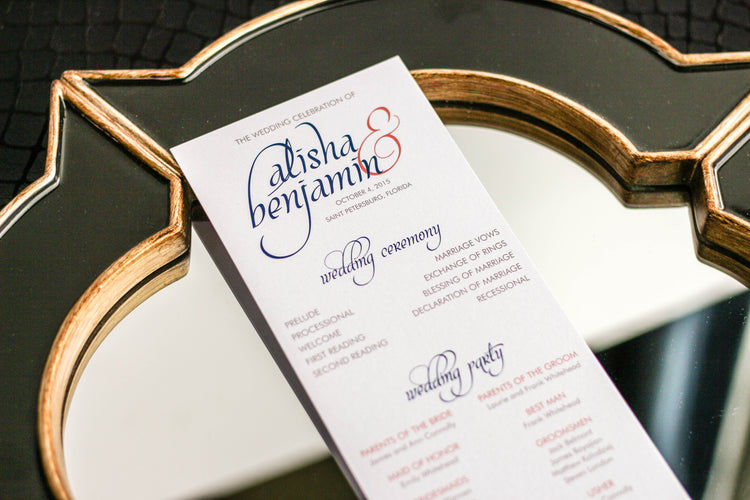 THE WEDDING CELEBRATION OF
alisha &
benjamin
OCTOBER 4, 2015
SAINT PETERSBURG, FLORIDA
wedding ceremony
PRELUDE
PROCESSIONAL
WELCOME
FIRST READING
SECOND READING
MARRIAGE VOWS
EXCHANGE OF RINGS
BLESSING OF MARRIAGE
DECLARATION OF MARRIAGE
RECESSIONAL
wedding party
PARENTS OF THE BRIDE
James and Ann Connolly
MAID OF HONOR
Emily Whitehead
BRIDESMAIDS
PARENTS OF THE GROOM
Laurie and Frank Whitehead
BEST MAN
Frank Whitehead
GROOMSMEN
Jack Belmont
James
Matthew
Steven London
USHER
Connolly